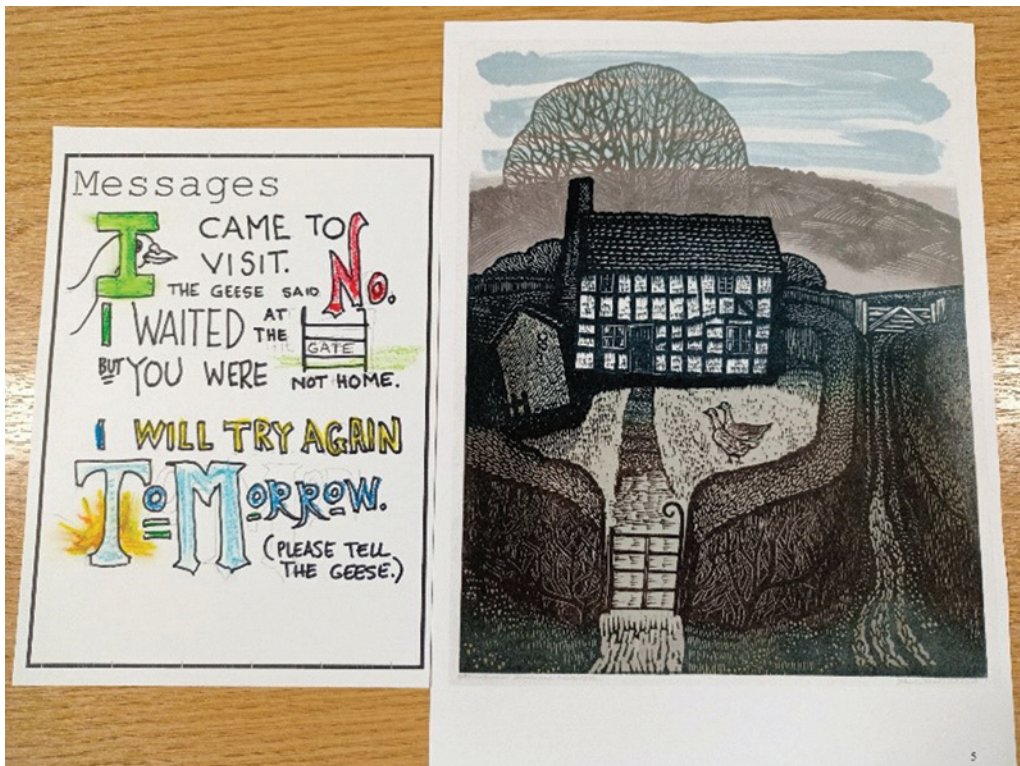 Messages
I CAME TO
VISIT.
THE GEESE SAID No.
I WAITED AT THE GATE
BUT YOU WERE NOT HOME.
I WILL TRY AGAIN
ToMoRRoW.
(PLEASE TELL
THE GEESE.)
5